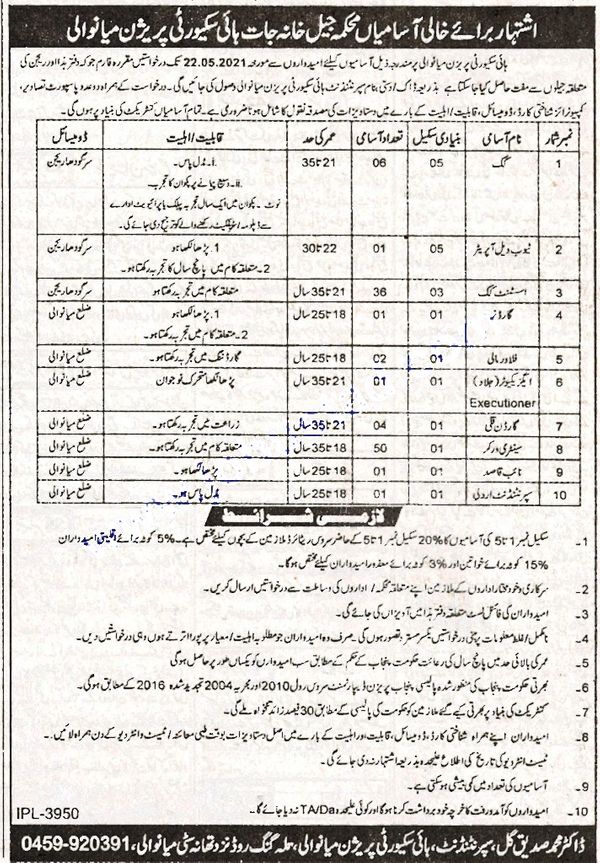 اشتہار برائے خالی آسامیاں محکمہ جیل خانہ جات ہائی سکیورٹی پریژن میانوالی
ہائی سکیورٹی پریزن میانوالی پر مندرجہ ذیل آسامیوں کیلئے امیدواروں سے مورخہ 22.05.2021 تک درخواستیں مقررہ فارم جو کہ دفتر ہذا اور ریجن کی
متعلقہ جیلوں سے مفت حاصل کیا جاسکتا ہے بذریعہ ڈاک/دستی بنام سپرنٹنڈنٹ ہائی سکیورٹی پریزن میانوالی وصول کی جائیں گی۔ جس کے ہمراہ دو عدد پاسپورٹ تصاویر،
کمپیوٹرائزڈ شناختی کارڈ، ڈومیسائل، قابلیت/اہلیت کے بارے میں دستاویزات کی مصدقہ نقول کا شامل ہونا ضروری ہے۔ تمام آسامیاں کنٹریکٹ کی بنیاد پر ہوں گی۔
نمبر شمار نام آسامی بنیادی سکیل تعداد آسامی عمر کی حد قابلیت/اہلیت ڈومیسائل
1 کک 05 06 21 تا 35 i. مڈل پاس۔ سرگودھا ریجن
ii. وسیع پیمانے پر پکوان کا تجربہ
نوٹ۔ پکوان میں ایک سال تجربہ پبلک یا پرائیویٹ ادارے
سے ڈپلومہ/سرٹیفکیٹ رکھنے والے کو ترجیح دی جائے گی۔
2 ٹیوب ویل آپریٹر 05 01 22 تا 30 1. پڑھا لکھا ہو سرگودھا ریجن
2۔ متعلقہ کام میں پانچ سال کا تجربہ رکھتا ہو۔
3 اسسٹنٹ کک 03 36 21 تا 35 سال متعلقہ کام میں تجربہ رکھتا ہو سرگودھا ریجن
4 گارڈنر 01 01 18 تا 25 سال 1. پڑھا لکھا ہو ضلع میانوالی
2۔ متعلقہ کام میں تجربہ رکھتا ہو۔
5 فلاور مالی 01 02 18 تا 25 سال گارڈننگ میں تجربہ رکھتا ہو۔ ضلع میانوالی
6 ایگزیکیوٹر (جلاد) 01 01 21 تا 35 سال پڑھا لکھا متحرک نوجوان ضلع میانوالی
Executioner
7 گارڈن قلی 01 04 21 تا 35 سال زراعت میں تجربہ رکھتا ہو۔ ضلع میانوالی
8 سینٹری ورکر 01 50 18 تا 35 سال متعلقہ کام میں تجربہ رکھتا ہو۔ ضلع میانوالی
9 نائب قاصد 01 01 18 تا 25 سال پڑھا لکھا ہو۔ ضلع میانوالی
10 سپرنٹنڈنٹ اردلی 01 01 18 تا 25 سال مڈل پاس ہو۔ ضلع میانوالی
لازمی شرائط
1۔ سکیل نمبر 1 تا 5 کی آسامیوں کا 20% سکیل نمبر 1 تا 5 کے حاضر سروس ریٹائرڈ ملازمین کے بچوں کیلئے مختص ہے۔ 5% کوٹہ برائے اقلیتی امیدواران
15% کوٹہ برائے خواتین اور 3% کوٹہ برائے معذور امیدواران کیلئے مختص ہوگا۔
2۔ سرکاری و خود مختار اداروں کے ملازمین اپنے متعلقہ محکمہ/اداروں کی وساطت سے درخواستیں ارسال کریں۔
3۔ امیدواران کی فائنل لسٹ متعلقہ دفتر ہذا میں آویزاں کی جائے گی۔
4۔ نامکمل/غلط معلومات پر مبنی درخواستیں یکسر مسترد تصور ہوں گی۔ صرف وہ امیدواران جو مطلوبہ اہلیت/معیار پر پورا اترتے ہوں وہی درخواستیں دیں۔
5۔ عمر کی بالائی حد میں پانچ سال کی رعائت حکومت پنجاب کے حکم کے مطابق سب امیدواروں کو یکساں طور پر حاصل ہوگی
6۔ بھرتی حکومت پنجاب کی منظور شدہ پالیسی پنجاب پریزن ڈیپارٹمنٹ سروس رول 2010 اور مجریہ 2004 تجدید شدہ 2016 کے مطابق ہوگی۔
7۔ کنٹریکٹ کی بنیاد پر بھرتی کیے گئے ملازمین کو حکومت کی پالیسی کے مطابق 30 فیصد زائد تنخواہ ملے گی۔
8۔ امیدواران اپنے ہمراہ شناختی کارڈ، ڈومیسائل، قابلیت اور اہلیت کے بارے میں اصل دستاویزات بوقت طبی معائنہ/ٹیسٹ و انٹرویو کے دن ہمراہ لائیں۔
ٹیسٹ انٹرویو کی تاریخ کی اطلاع علیحدہ بذریعہ اشتہار نہ دی جائے گی۔
9۔ آسامیوں کی تعداد میں کمی بیشی ہو سکتی ہے۔
10۔ امیدواروں کو آمدورفت کا خرچہ خود برداشت کرنا ہوگا اور کوئی علیحدہ TA/Da نہ دیا جائے گا۔
IPL-3950
ڈاکٹر محمد صدیق گل، سپرنٹنڈنٹ، ہائی سکیورٹی پریزن میانوالی، محلہ گھنگ روڈ نزد تھانہ سٹی میانوالی، 0459-920391